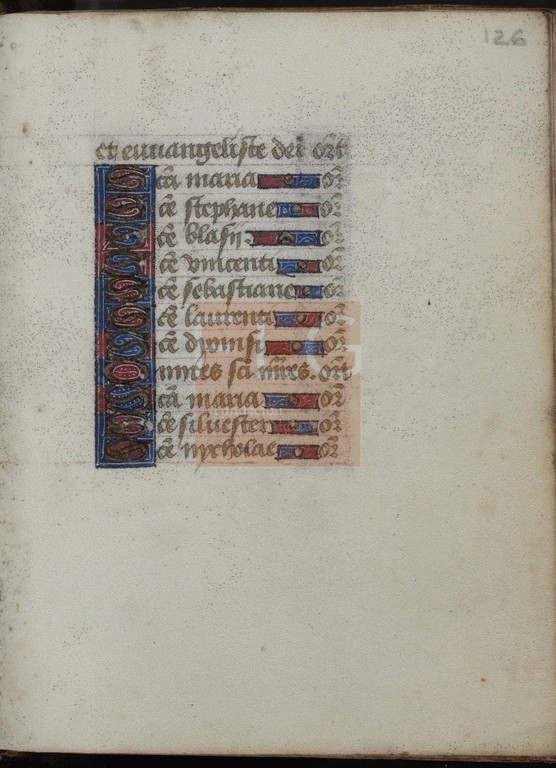 126
et euuangeliste dei or̄t
Sc̄a maria or̄
Sc̄e stephane or̄
Sc̄e blasij or̄
Sc̄e vincenti or̄
Sc̄e sebastiane or̄
Sc̄e laurenti or̄
Sc̄e dyonisi or̄
Omnes sc̄i mr̄es or̄t
Sc̄a maria or̄
Sc̄e siluester or̄
Sc̄e nycholae or̄